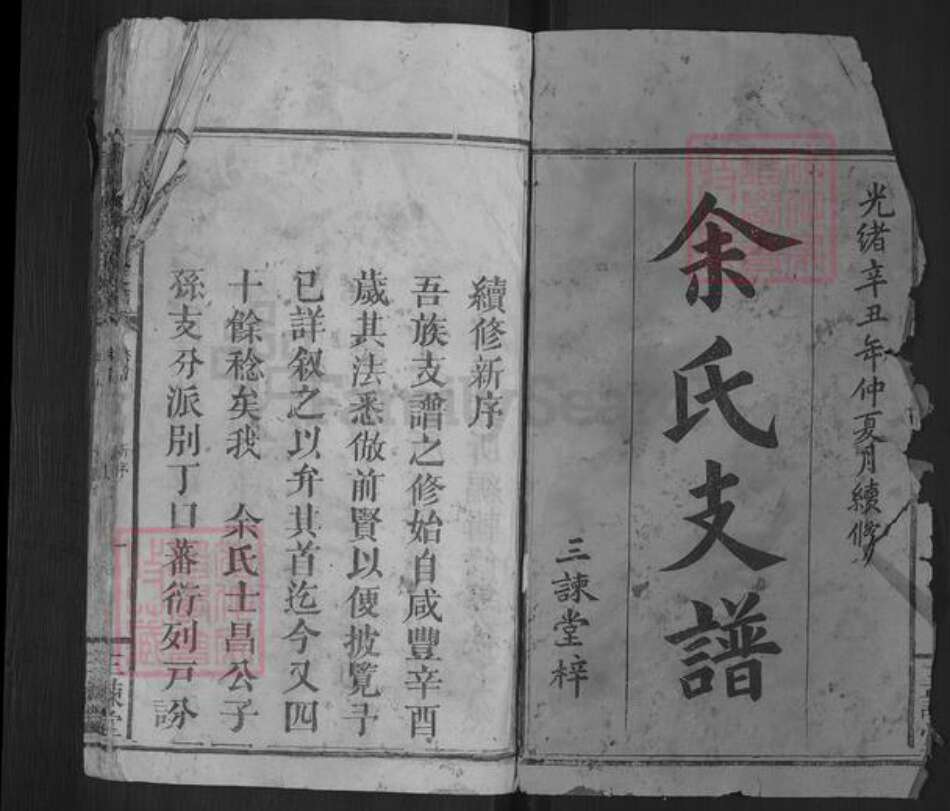 光緒辛丑年仲夏月續修
余氏支譜
三諫堂梓
續修新序
吾族支譜之修始自咸豐辛酉
歲其法悉倣前賢以便披覽予
已詳叙之以弁其首迄今又四
十餘稔矣我 余氏士昌公子
孫支分派別丁口蕃衍列戸
三諫堂